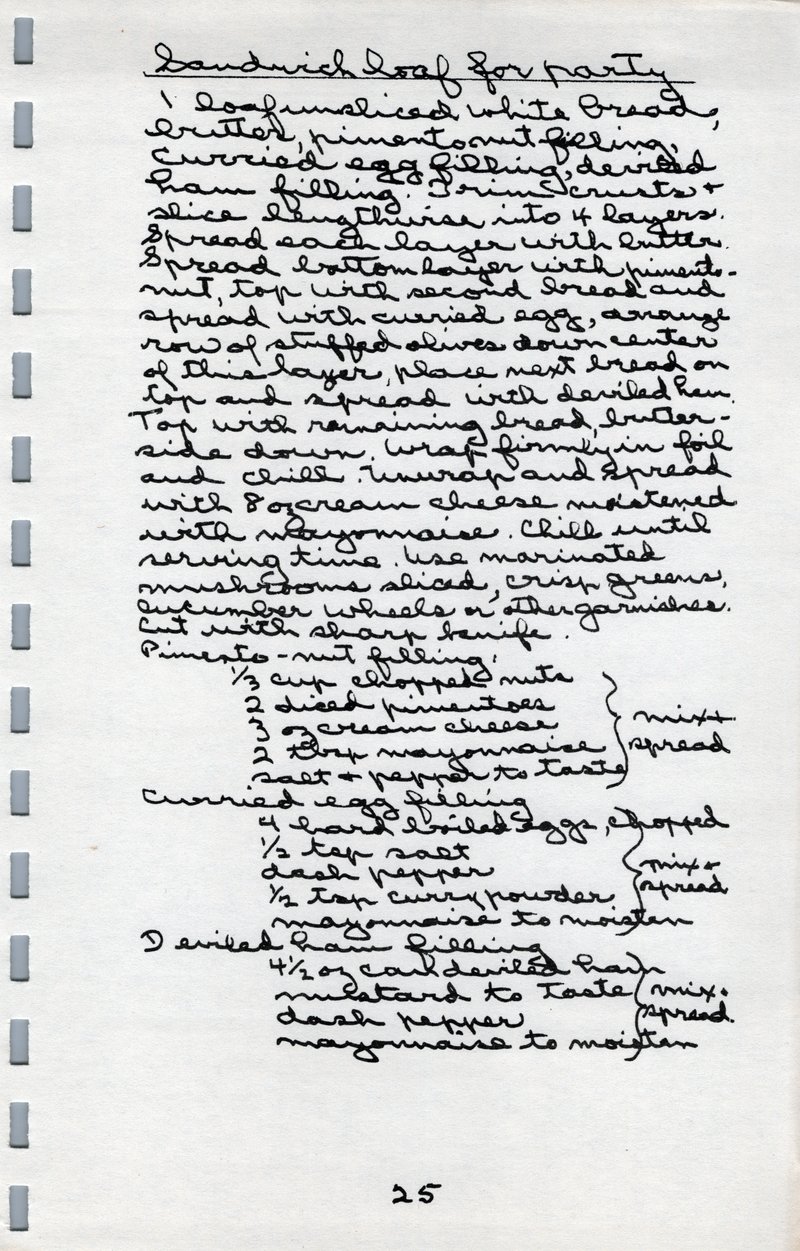 Sandwich loaf for party
1 loaf unsliced white bread,
butter, pimento nut filling,
curried egg filling, deviled
ham filling. Trim crusts +
slice lengthwise into 4 layers.
Spread each layer with butter.
Spread bottom layer with pimento-
nut, top with second bread and
spread with curried egg, arrange
row of stuffed olives down center
of this layer, place next bread on
top and spread with deviled ham.
Top with remaining bread, butter-
side down. Wrap firmly in foil
and chill. Unwrap and spread
with 8 oz cream cheese moistened
with mayonnaise. Chill until
serving time. Use marinated
mushrooms sliced, crisp greens,
cucumber wheels or other garnishes.
Cut with sharp knife.
Pimento-nut filling:
1/3 cup chopped nuts
2 diced pimentoes
3 oz cream cheese
mix +
2 tbsp mayonnaise
spread
salt + pepper to taste
Curried egg filling
4 hard boiled eggs, chopped
1/2 tsp salt
dash pepper
mix +
spread
1/2 tsp curry powder
mayonnaise to moisten
Deviled ham filling
4 1/2 oz can deviled ham
mustard to taste
mix +
dash pepper
spread.
mayonnaise to moisten
25